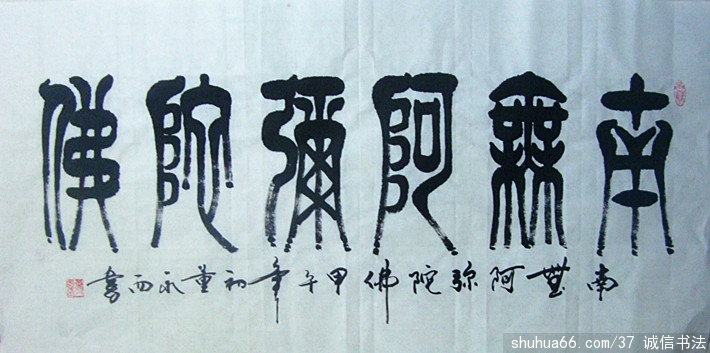 南無阿彌陀佛
南無阿弥陀佛甲午年初董永西書
shuhua66.com/37 诚信书法